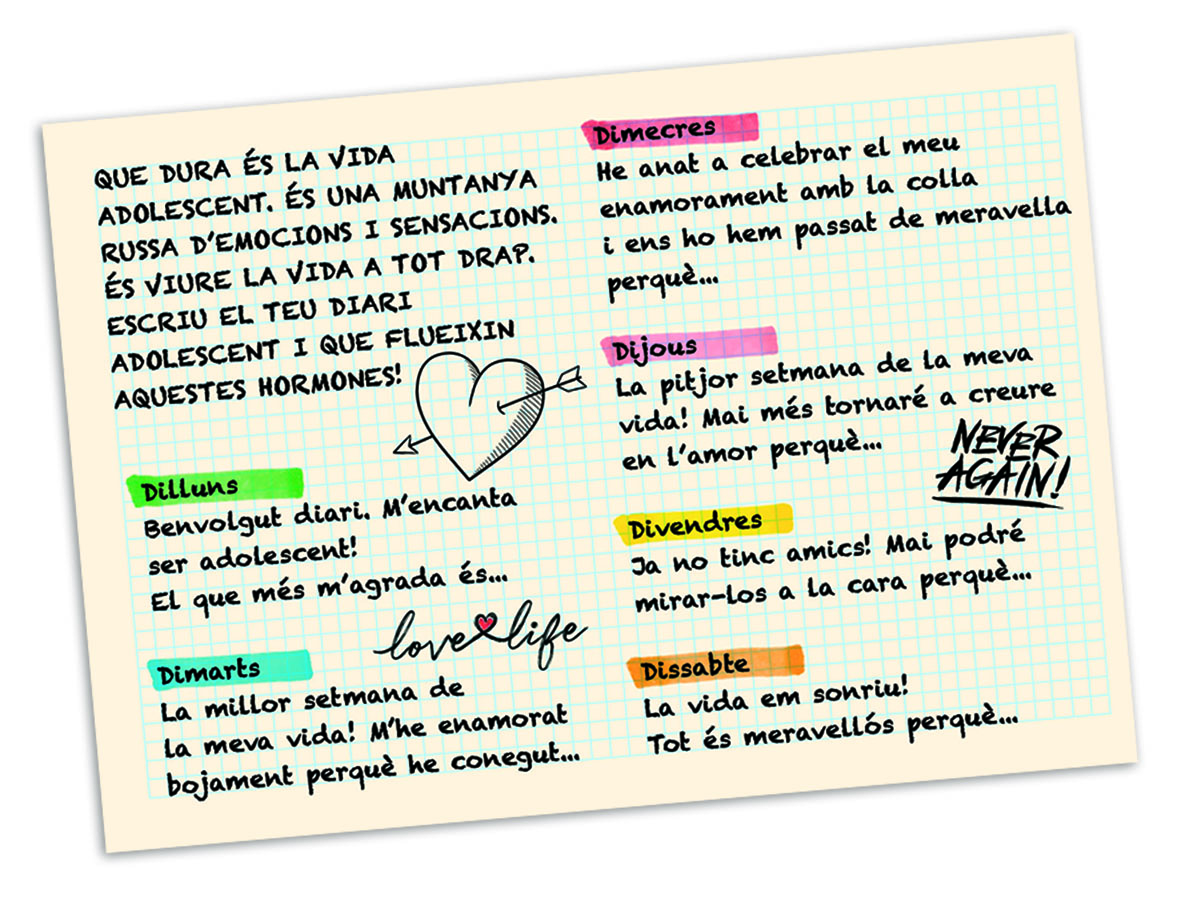 QUE DURA ÉS LA VIDA
ADOLESCENT. ÉS UNA MUNTANYA
RUSSA D'EMOCIONS I SENSACIONS.
ÉS VIURE LA VIDA A TOT DRAP.
ESCRIU EL TEU DIARI
ADOLESCENT I QUE FLUEIXIN
AQUESTES HORMONES!
Dilluns
Benvolgut diari. M'encanta
ser adolescent!
El que més m'agrada és...
love life
Dimarts
La millor setmana de
la meva vida! M'he enamorat
bojament perquè he conegut...
Dimecres
He anat a celebrar el meu
enamorament amb la colla
i ens ho hem passat de meravella
perquè...
Dijous
La pitjor setmana de la meva
vida! Mai més tornaré a creure
en l'amor perquè...
NEVER
AGAIN!
Divendres
Ja no tinc amics! Mai podré
mirar-los a la cara perquè...
Dissabte
La vida em sonriu!
Tot és meravellós perquè...